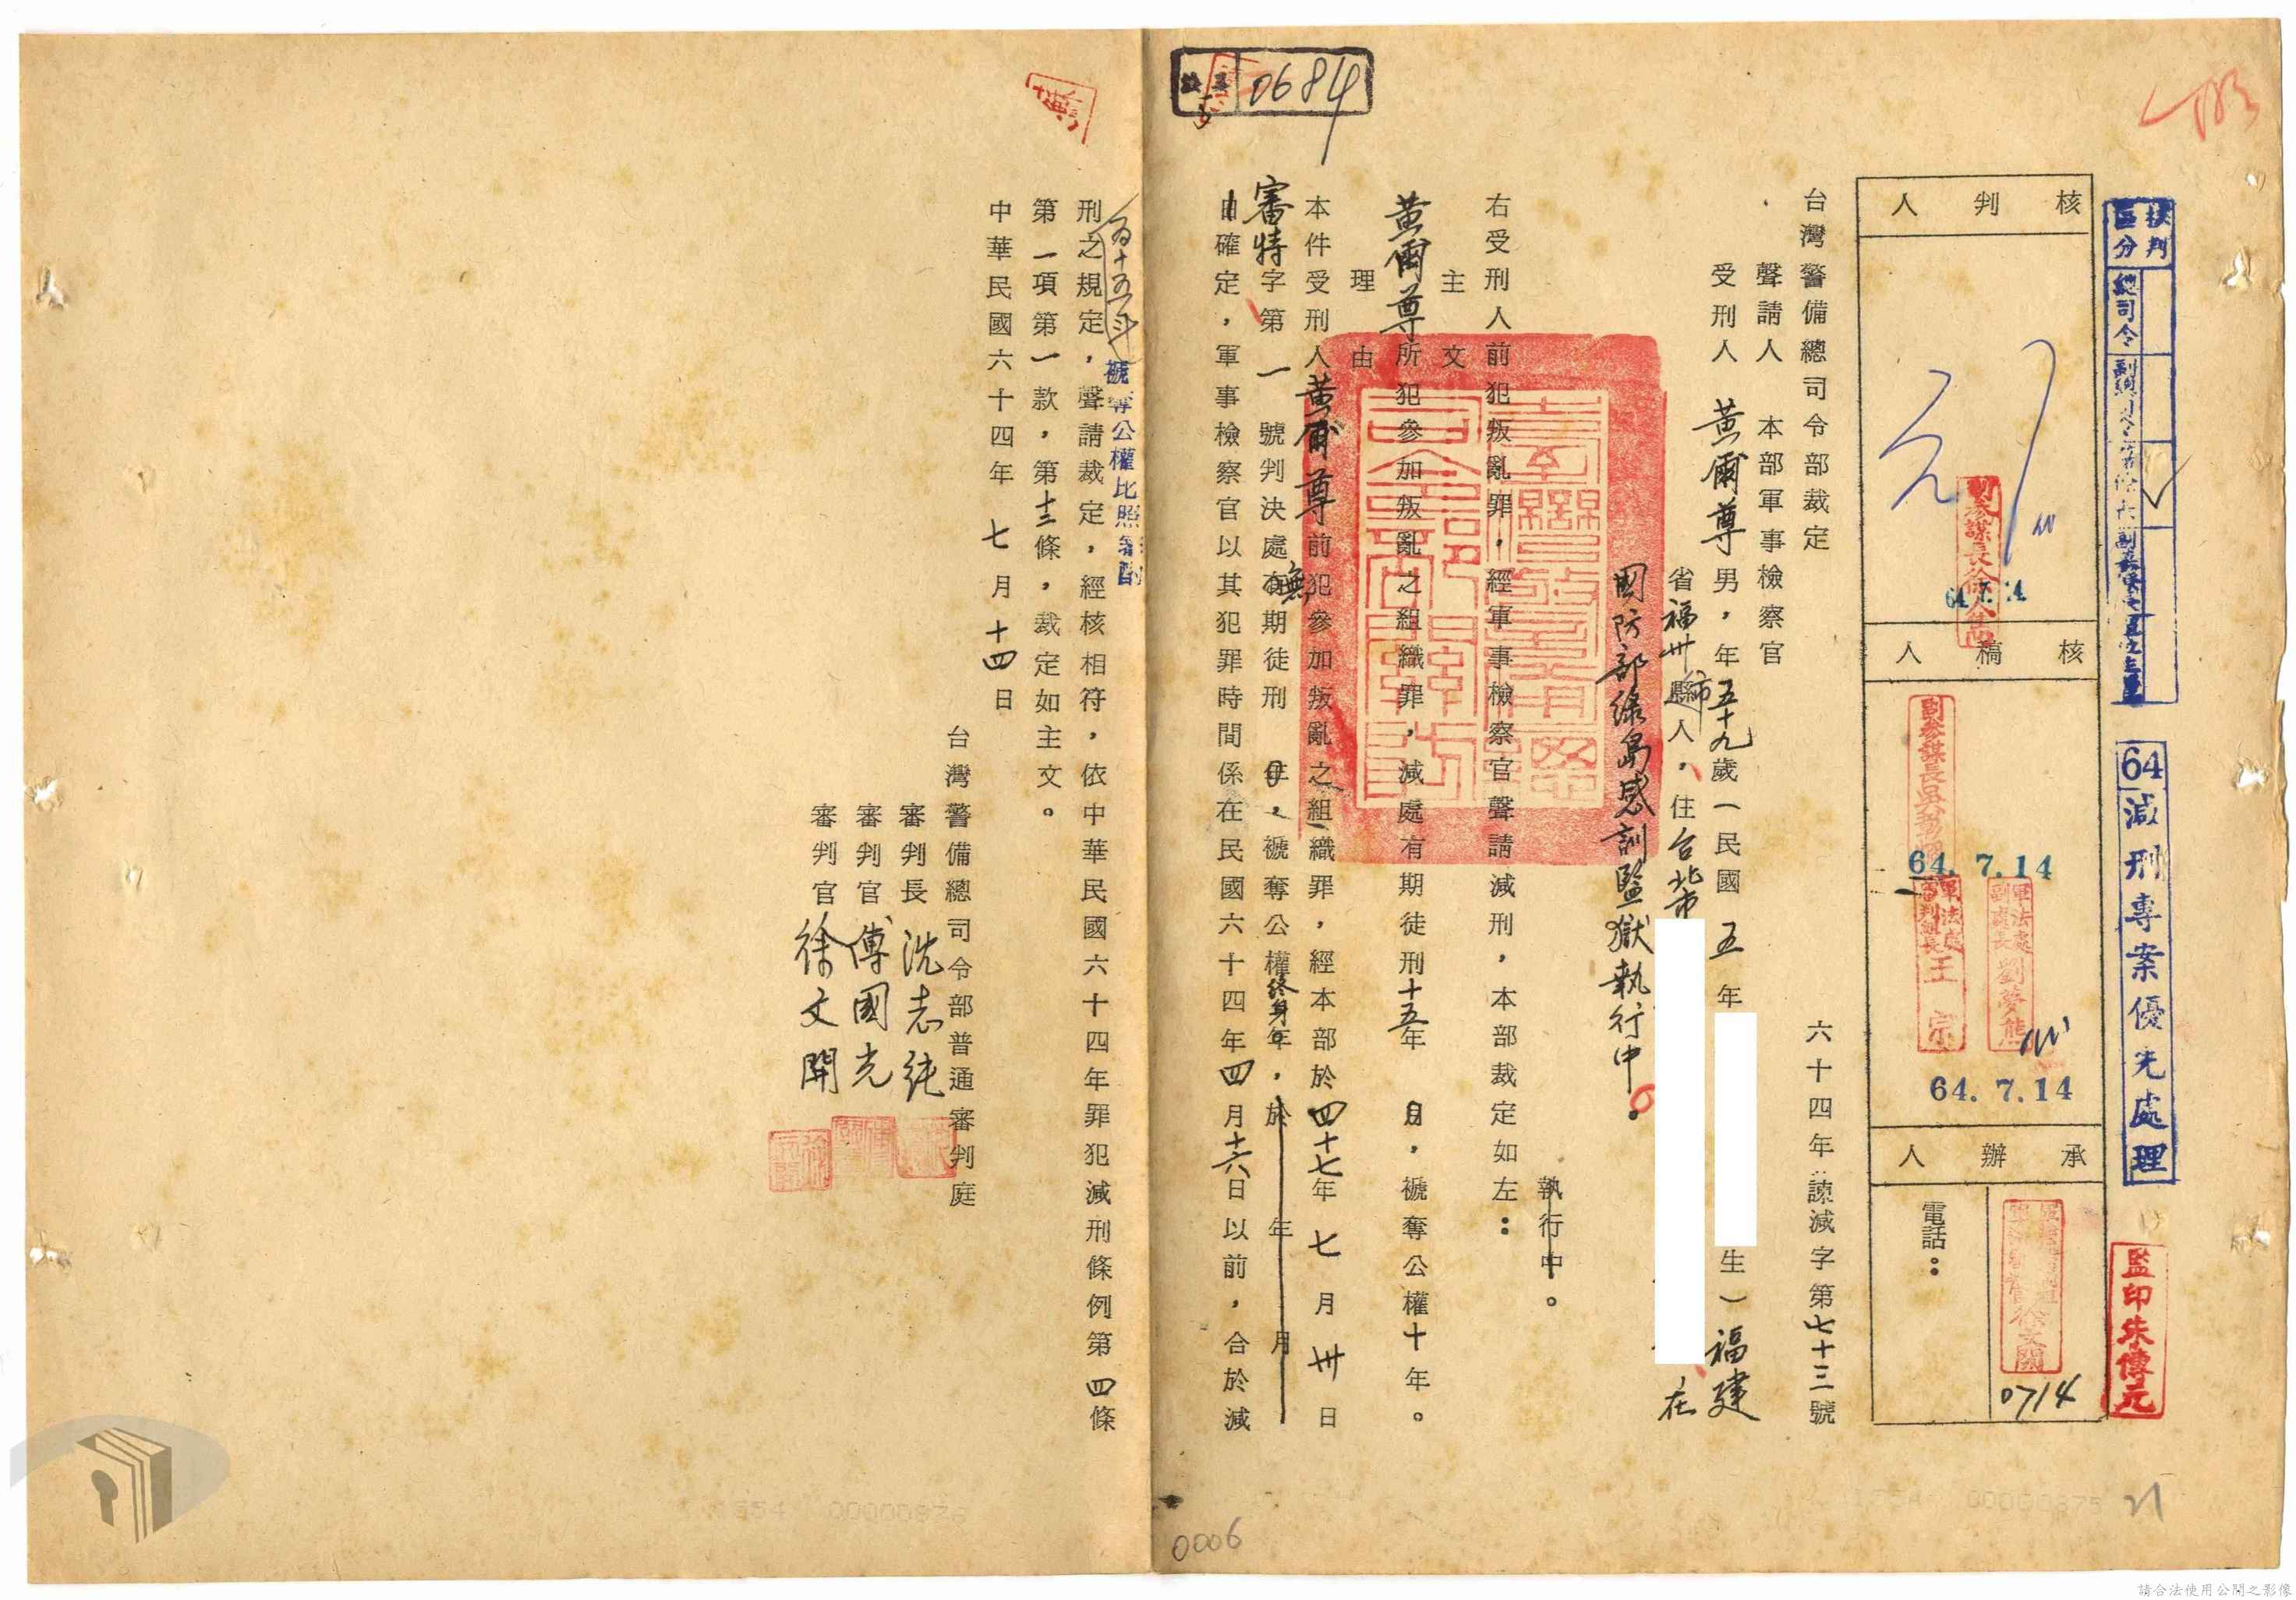 0684
核判區分
總司令
64減刑專案優先處理
監印朱傳元
核判人
副參謀長徐
64.7.14
核稿人
副參謀長吳
64.7.14
軍法處副處長劉夢熊
軍法處審判組長王宗
64.7.14
承辦人
徐文開
0714
電話：
台灣警備總司令部裁定
六十四年諫減字第七十三號
聲請人 本部軍事檢察官
受刑人 黃爾尊 男，年五十九歲（民國五年 生）福建
省福州縣市人，住台北市 在
國防部綠島感訓監獄執行中。
執行中。
右受刑人前犯叛亂罪，經軍事檢察官聲請減刑，本部裁定如左：
主文
黃爾尊所犯參加叛亂之組織罪，減處有期徒刑十五年 月，褫奪公權十年。
理由
本件受刑人黃爾尊前犯參加叛亂之組織罪，經本部於四十七年七月卅日
審特字第一號判決處有無期徒刑 年 月，褫奪公權終身年，於 年 月
日確定，軍事檢察官以其犯罪時間係在民國六十四年四月十六日以前，合於減
為十五年 褫奪公權比照
刑之規定，聲請裁定，經核相符，依中華民國六十四年罪犯減刑條例第四條
第一項第一款，第十二條，裁定如主文。
中華民國六十四年七月十四日
台灣警備總司令部普通審判庭
審判長 沈志純
審判官 傅國光
審判官 徐文開
0006
請合法使用公開之影像